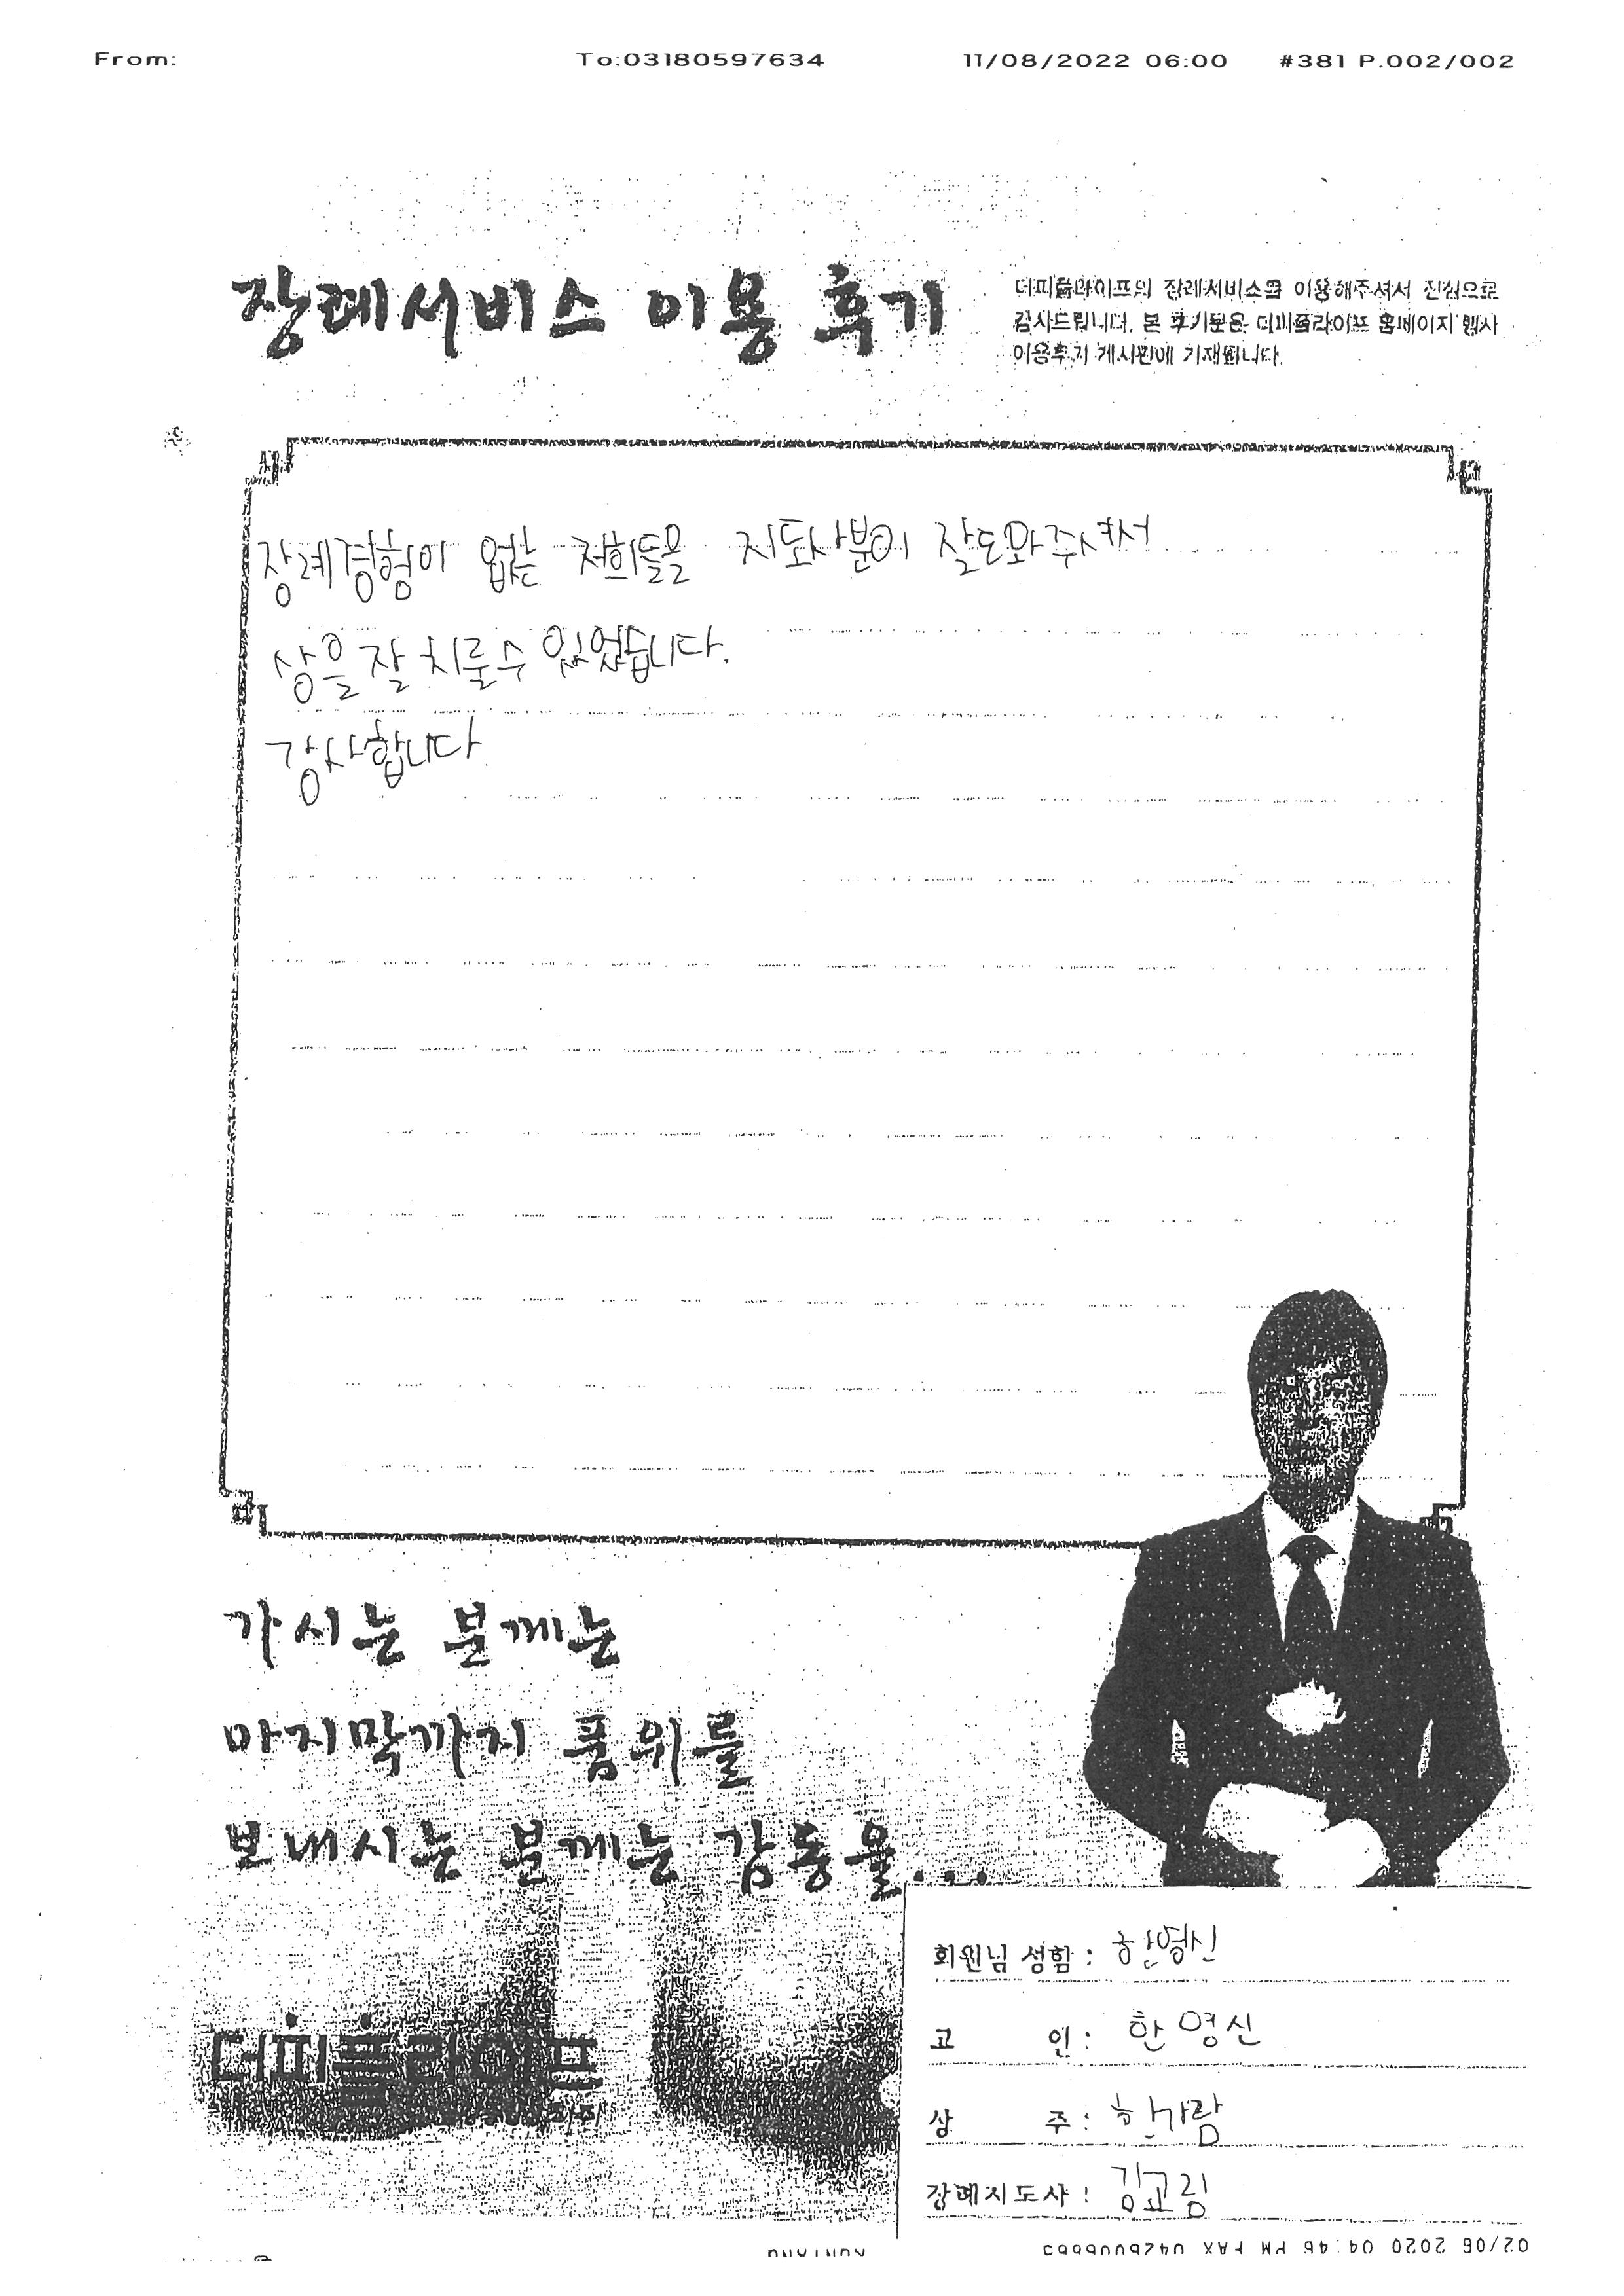 From: To:03180597634 11/08/2022 06:00 #381 P.002/002
장례서비스 이용 후기
더피플라이프의 장례서비스를 이용해주셔서 진심으로
감사드립니다. 본 후기분은 더피플라이프 홈페이지 행사
이용후기 게시판에 기재됩니다.
장례경험이 없는 저희들을 지도사분이 잘도와주셔서
상을 잘 치룰수 있었습니다.
감사합니다
가시는 분께는
마지막까지 품위를
보내시는 분께는 감동을...
더피플라이프
회원님 성함 : 한영신
고 인 : 한영신
상 주 : 한가람
장례지도사 : 김교림
02/06 2020 04:46 PM FAX